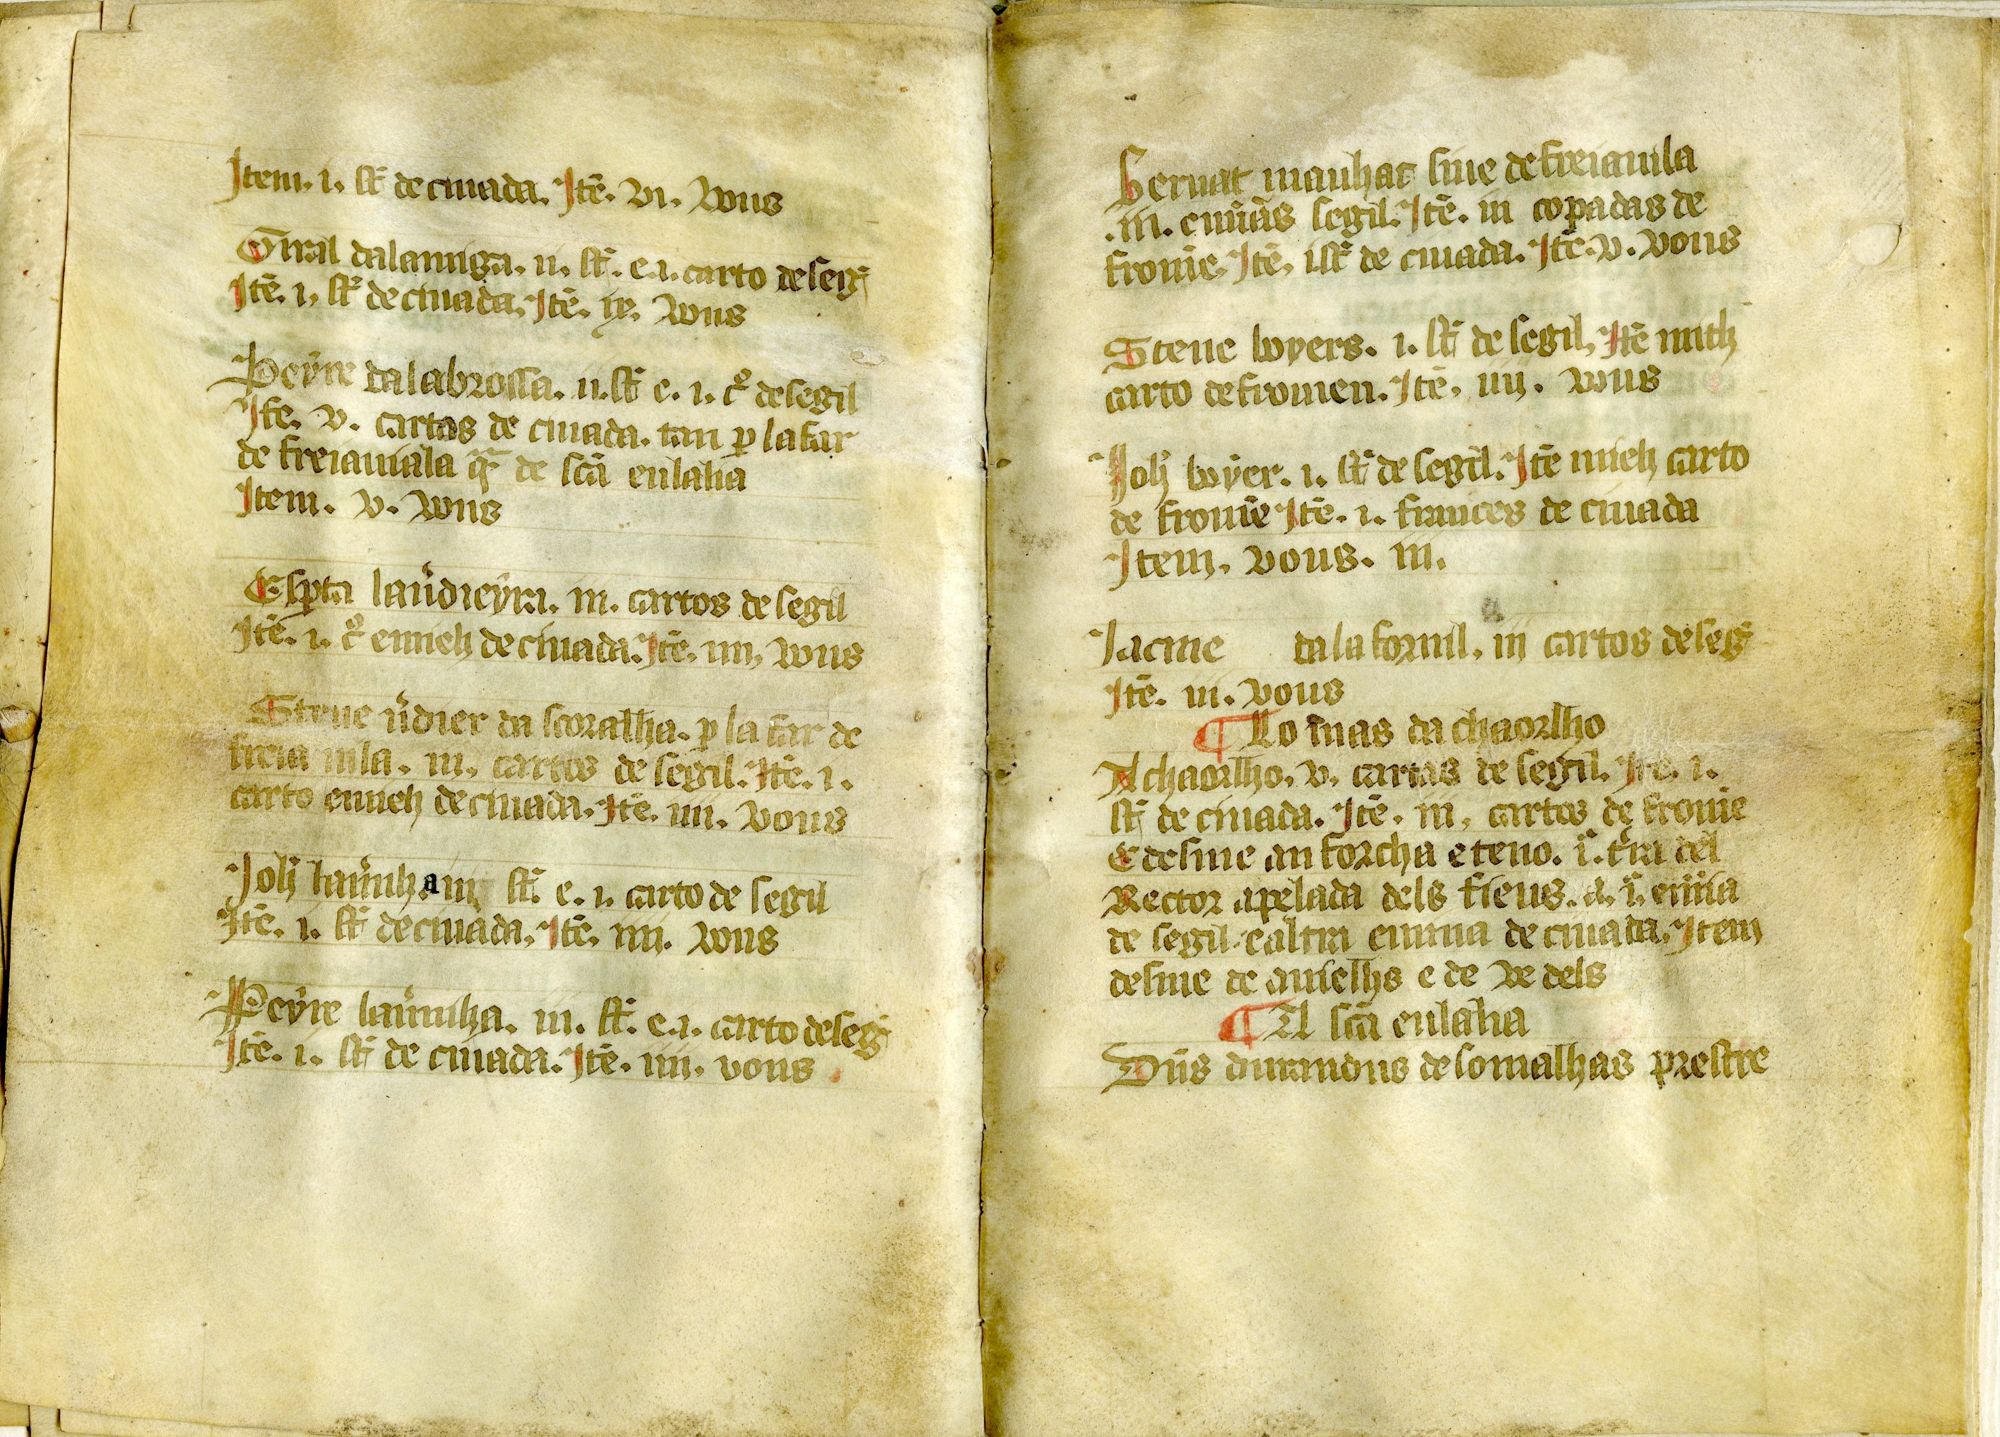 Item. i. st̃ de ciuada. Itē. vi. vous
Giral dalauuiga. ii. st̃. e. i. carto de seig̃
Itē. i. st̃ de ciuada. Itē. ix. vous
Peyre dalabrossa. ii. st̃ e. i. c̃o de segil
Itē. v. cartos de ciuada. tan p lafar
de freiauiala q̃ de sc̃a eulalia
Item. v. vous
Espta lau̾dieyra. iii. cartos de segil
Itē. i. c̃o emieh de ciuada. Itē. iiii. vous
Steue u̾dier da scoralha. p la far de
freia uila. iii. cartos de segil. Itē. i.
carto emieh de ciuada. Itē. iiii. vous
Joh̃ st̃. e. i. carto de segil
Itē. i. st̃ de ciuada. Itē. iiii. vous
Peyre lau̾nha. iii. st̃. e. i. carto de seg̃
Itē. i. st̃ de ciuada. Itē. iiii. vous
Bernat mauhac siue de freiauila
.iii. emĩas segil. Itē. iii copadas de
fromē. Itē. i st̃ de ciuada. Itē. v. vous
Steue boyers. i. st̃ de segil. Itē mieh
carto de fromen. Itē. iiii. vous
Joh̃ boyer. i. st̃ de segil. Itē mieh carto
de fromē Itē. i. frances de ciuada
Item. vous. iii.
Jacme da la fornil. iii cartos de seg̃
Itē. iii. vous
¶ Lo mas da chaorlho
A chaorlho. v. cartas de segil. Itē. i.
st̃ de ciuada. Itē. iii. cartos de fromē
E desme an forcha e teno. i.ᵃ t̾ra del
Rector apelada dels fieus. a. i.ᵃ em̃ia
de segil. e altra emina de ciuada. Item
desme de anielhs e de vedels
¶ A sc̃a eulalia
Dñs durandus de somalhas prestre